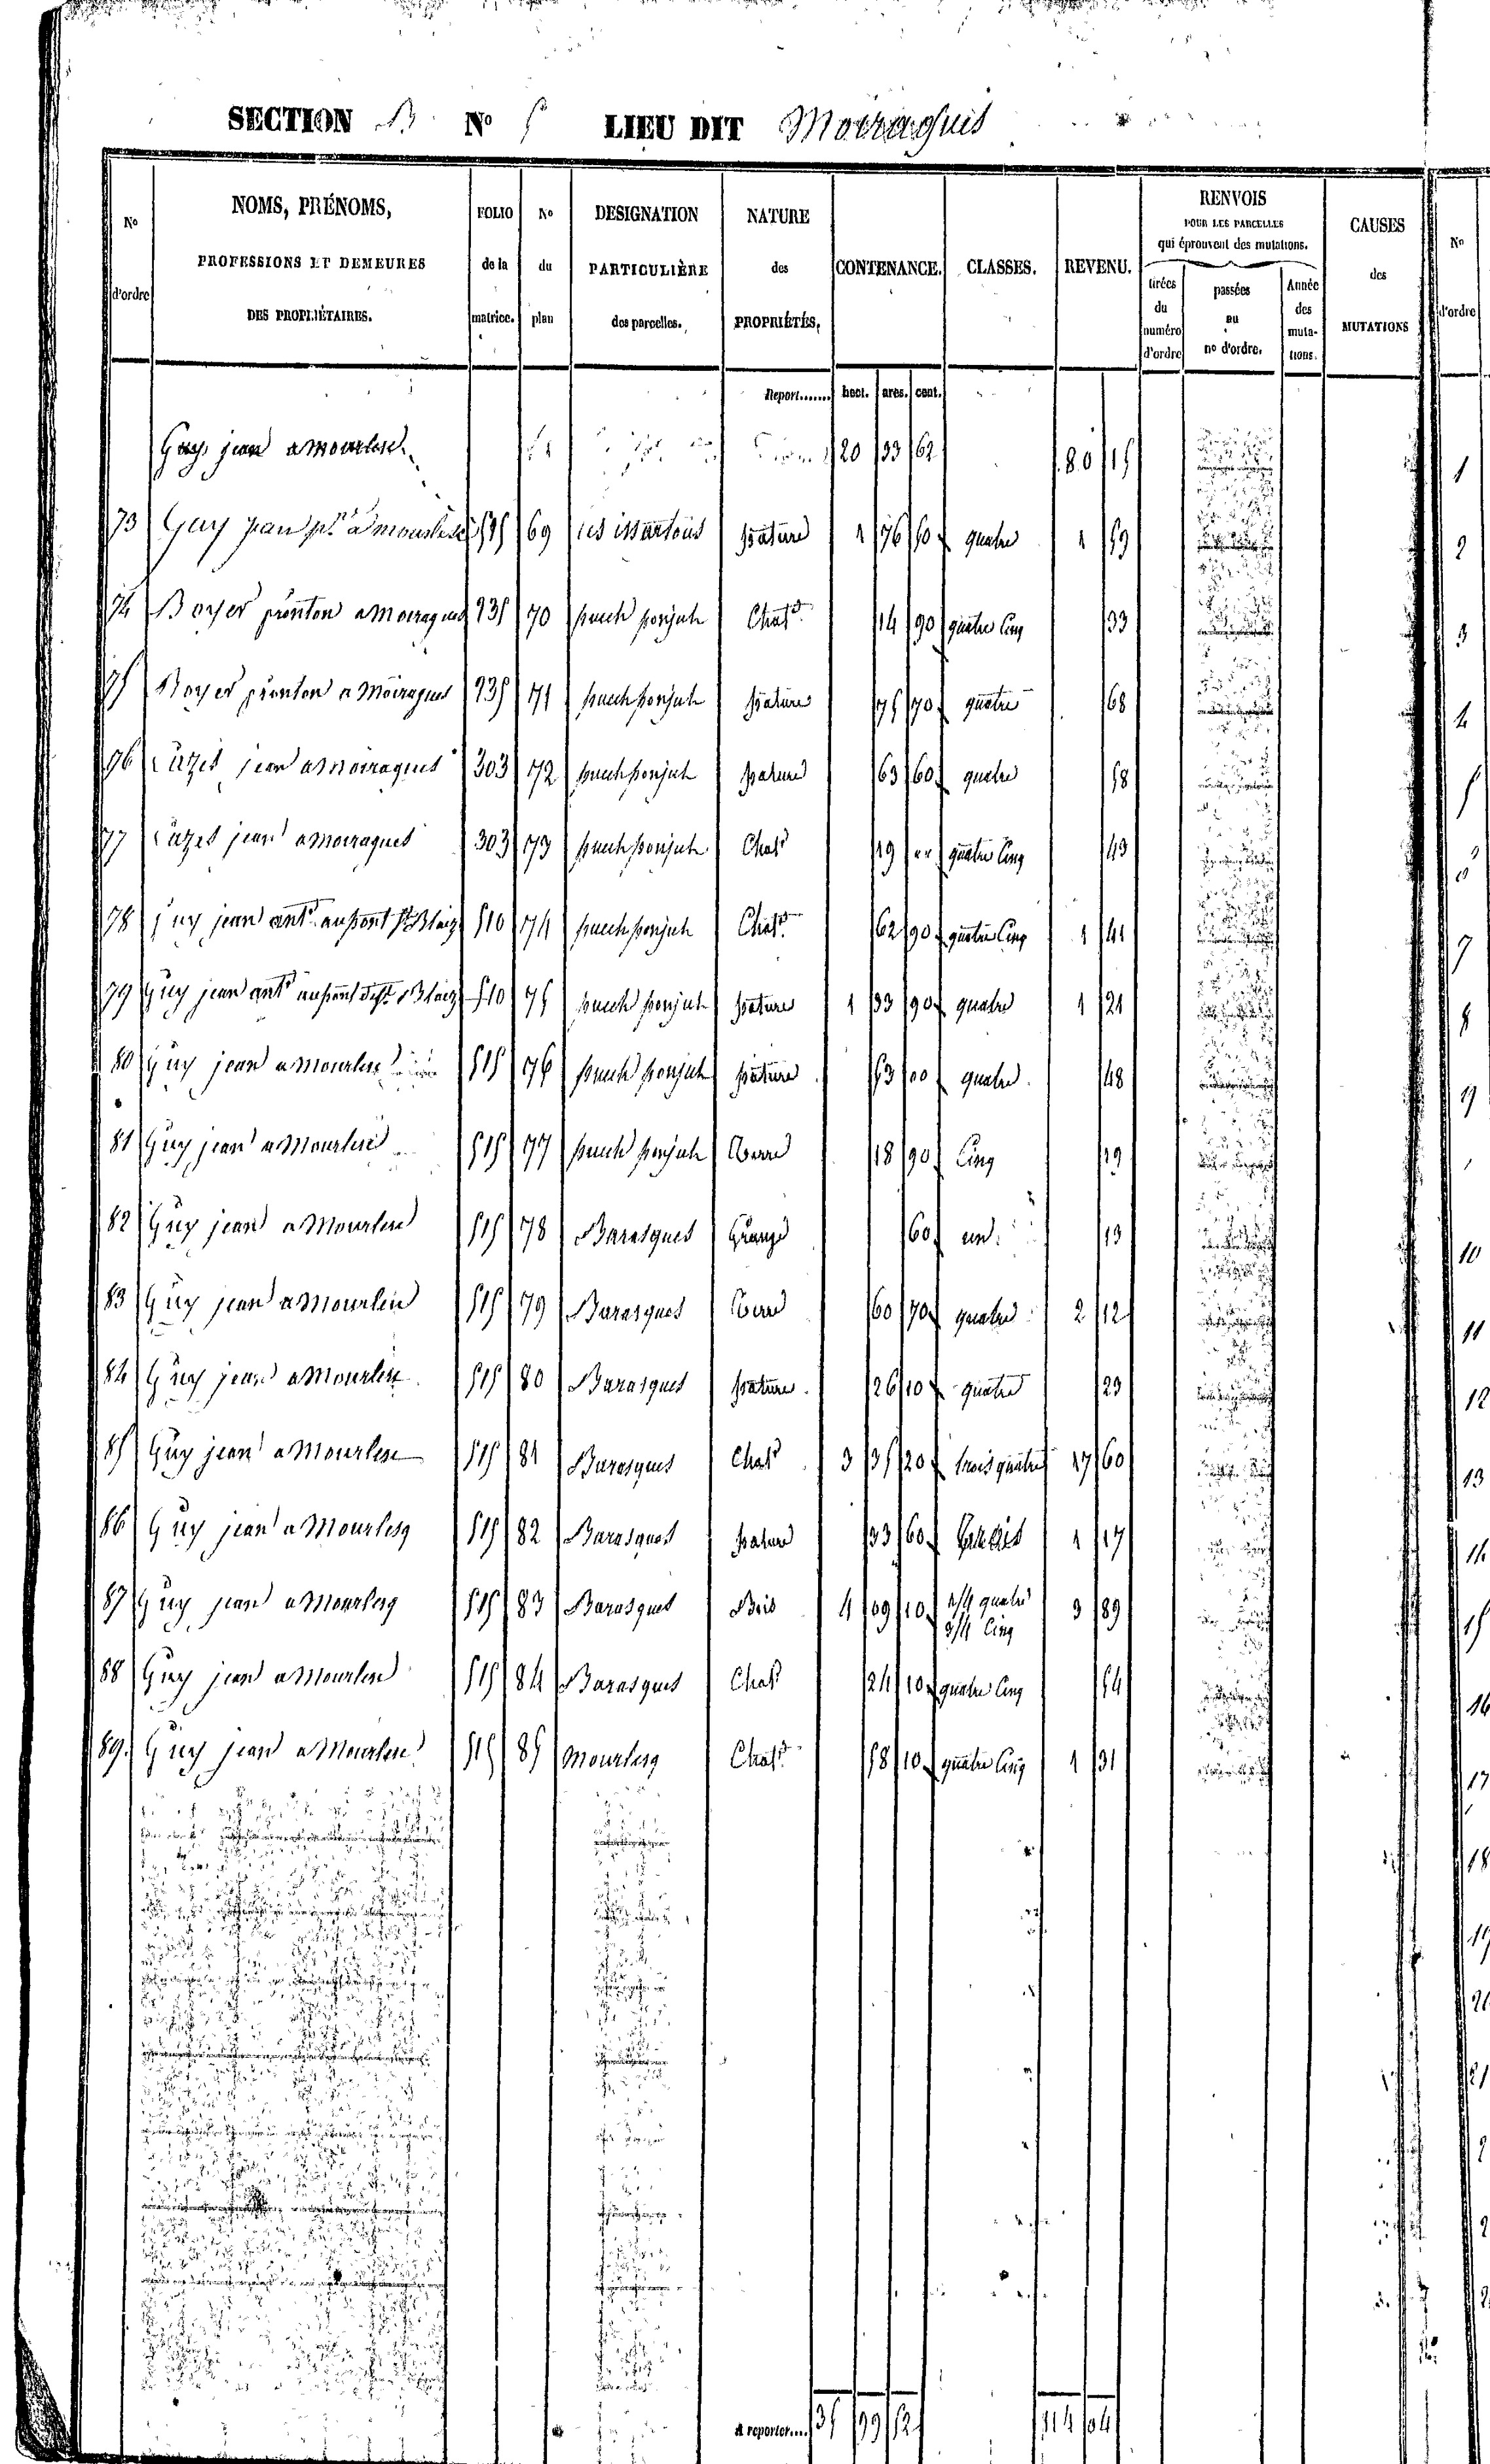 SECTION B N° 5 LIEU DIT Moiraguis
N° d'ordre
NOMS, PRÉNOMS, PROFESSIONS ET DEMEURES DES PROPRIÉTAIRES.
FOLIO de la matrice.
N° du plan
DESIGNATION PARTICULIÈRE des parcelles.
NATURE des PROPRIÉTÉS.
CONTENANCE.
CLASSES.
REVENU.
RENVOIS POUR LES PARCELLES qui éprouvent des mutations.
tirées du numéro d'ordre
passées au n° d'ordre.
Année des mutations.
CAUSES des MUTATIONS
N° d'ordre
Report....... hect. ares. cent.
Guy jean a mourlese 20 33 62 80 15
73 Guy jean a mourlese 515 69 les issartous pature 1 76 50 quatre 1 59
74 Boyer a moiragues 135 70 puech ponjuh Chat 14 90 quatre Cinq 33
75 Boyer a Moiragues 135 71 puech ponjuh pature 75 70 quatre 68
76 jean a moiragues 303 72 puech ponjuh pature 63 60 quatre 58
77 jean a moiragues 303 73 puech ponjuh Chat 19 quatre Cinq 43
78 Guy jean ant. au pont St Blaiz 510 74 puech ponjuh Chat 62 90 quatre Cinq 1 41
79 Guy jean ant. au pont St Blaiz 510 75 puech ponjuh pature 1 33 90 quatre 1 21
80 Guy jean a Mourlese 515 76 puech ponjuh pature 53 00 quatre 48
81 Guy jean a Mourlese 515 77 puech ponjuh Terre 18 90 Cinq 19
82 Guy jean a Mourlese 515 78 Barasques Grange 60 un 13
83 Guy jean a Mourlese 515 79 Barasques Terre 60 70 quatre 2 12
84 Guy jean a Mourlese 515 80 Barasques pature 26 10 quatre 23
85 Guy jean a Mourlese 515 81 Barasques Chat 3 35 20 trois quatre 17 60
86 Guy jean a Mourlesq 515 82 Barasques pature 33 60 1 17
87 Guy jean a Mourlesq 515 83 Barasques Bois 4 09 10 1/4 quatre 3/4 Cinq 3 89
88 Guy jean a Mourlese 515 84 Barasques Chat 24 10 quatre Cinq 54
89. Guy jean a Mourlese 515 85 Mourlesq Chat 58 10 quatre Cinq 1 31
A reporter.... 35 99 52 114 04